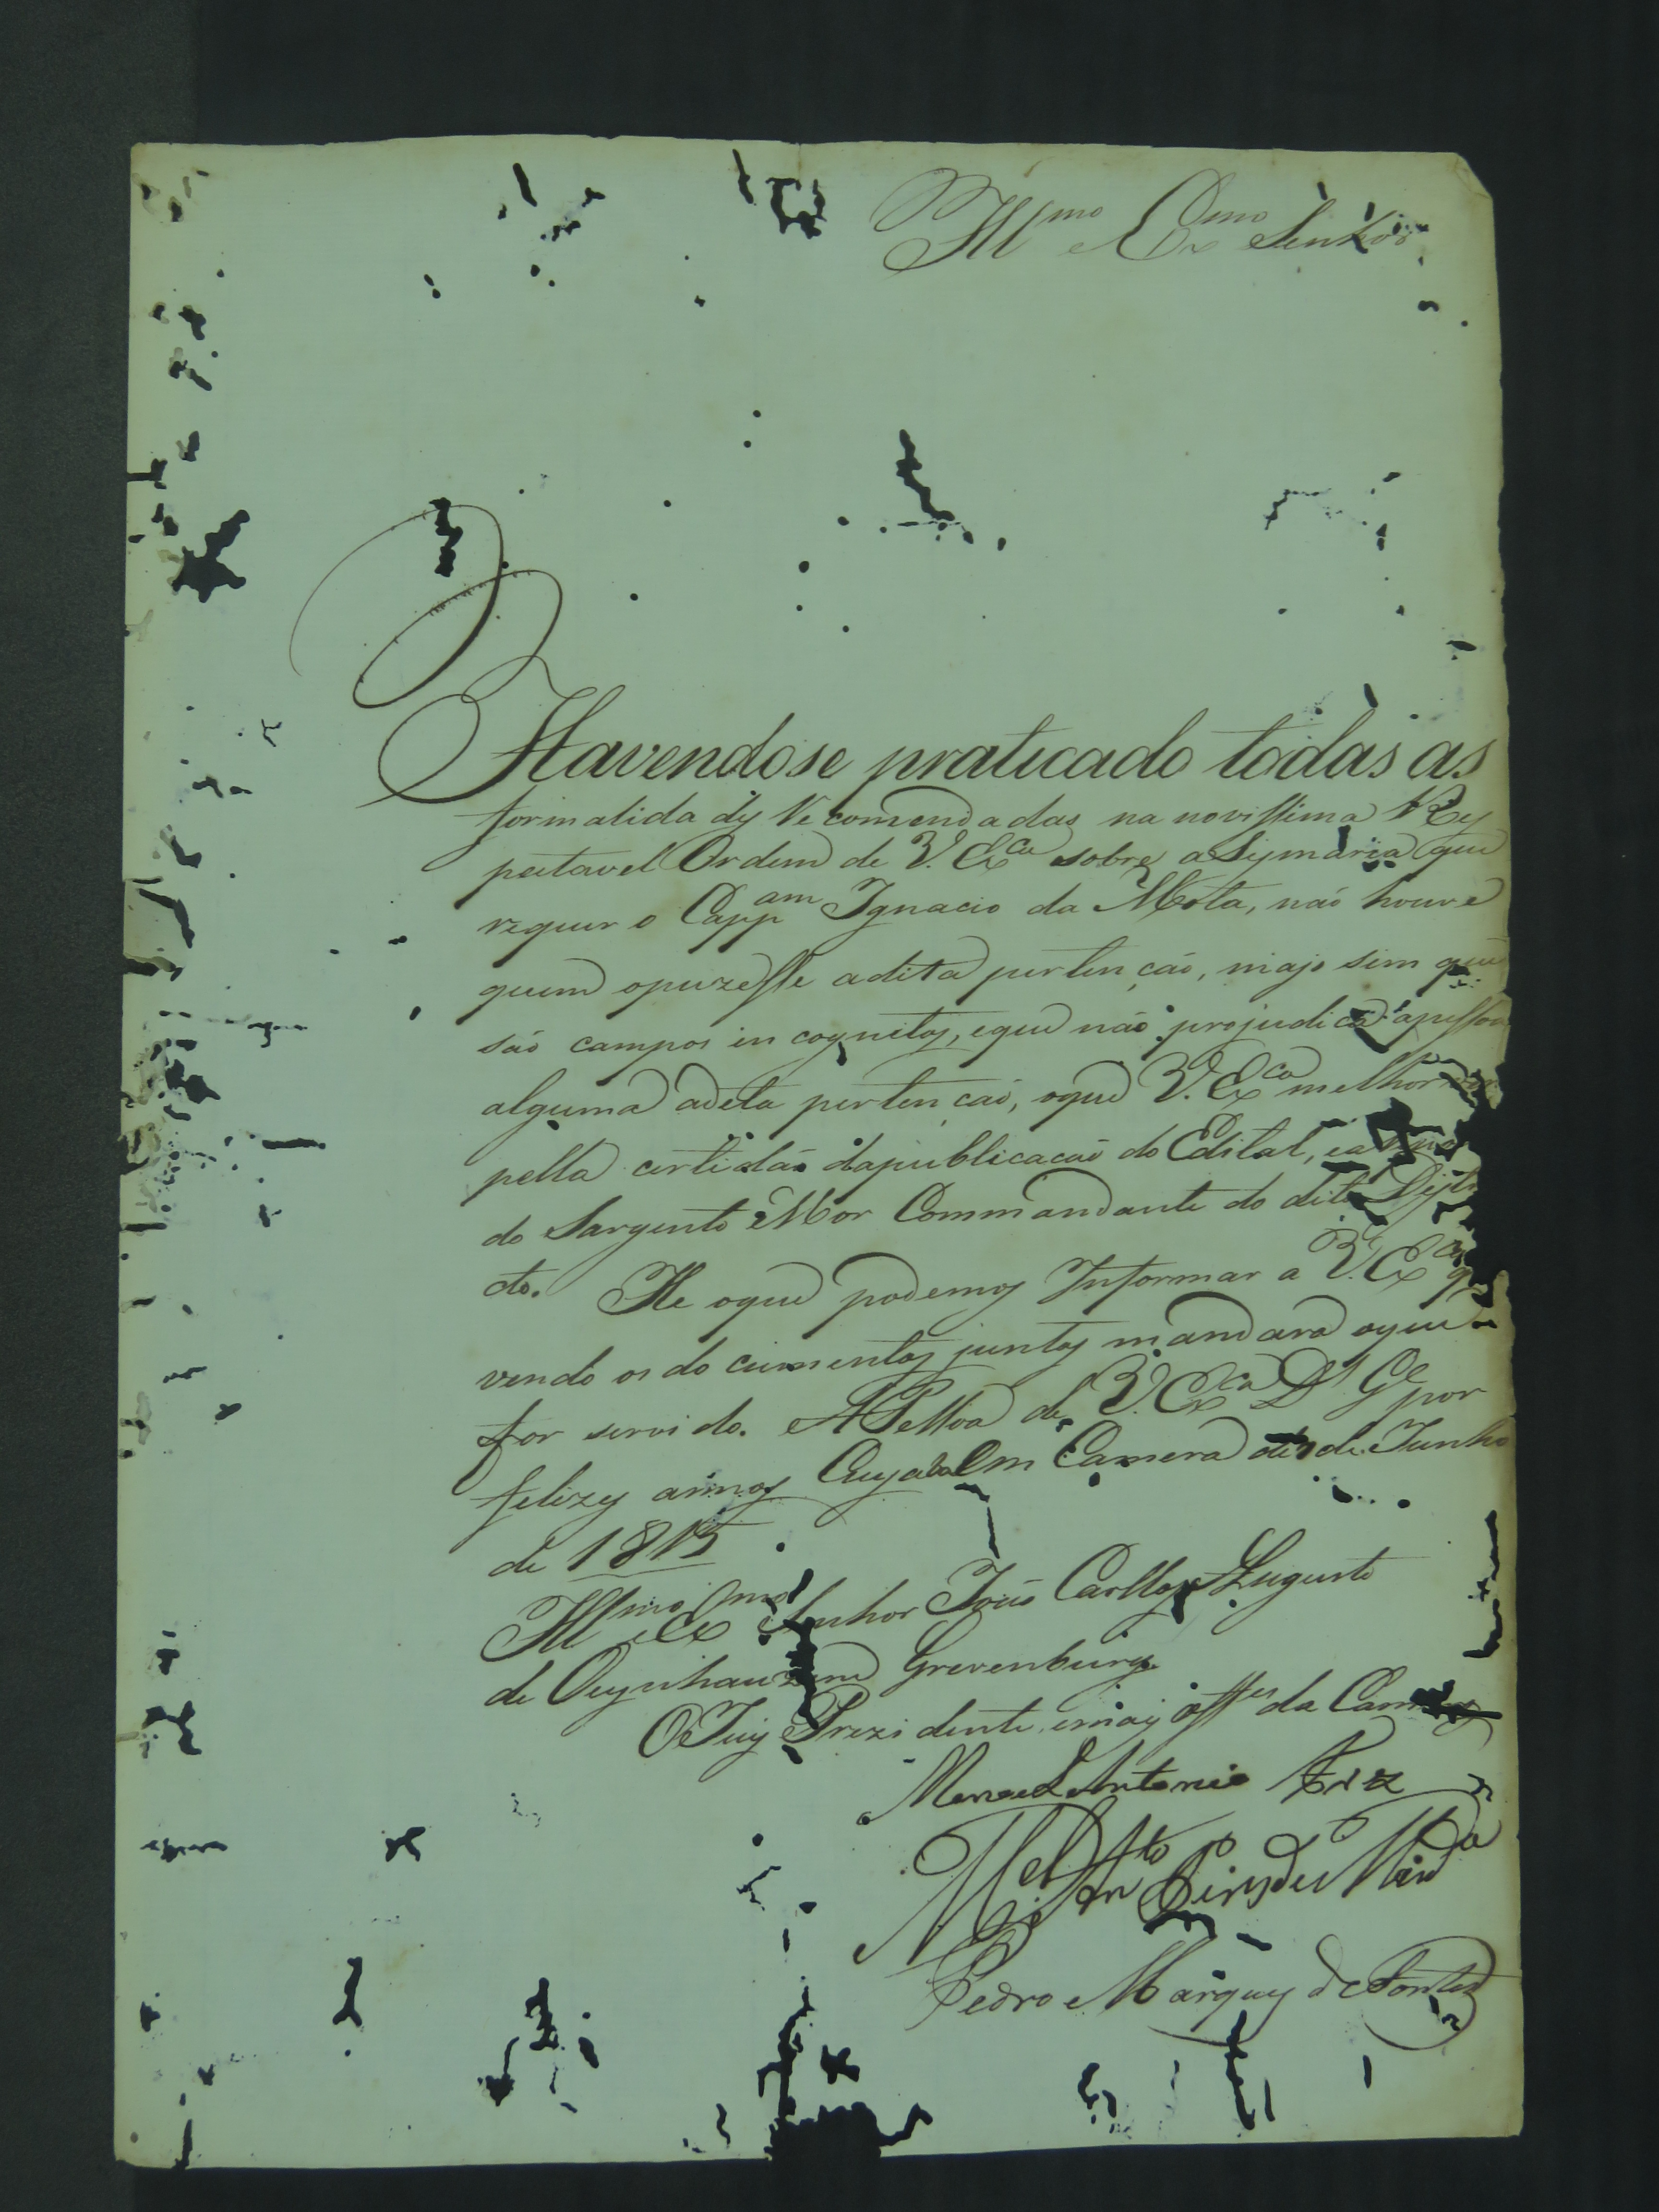 Ill.mo e Ex.mo Senhor
Havendose praticado todas as
formalida dis Recomendadas na novissima Res
peitavel Ordem de V. Ex.ca sobre a Sismaria que
requer o Capp.am Ignacio da Mota, naõ houve
quem opuzesse a dita pertençaõ, majs sim que
saõ campos in cognitos, eque naõ prejudica apessoa
alguma adeta pertençaõ, oque V. Ex.ca melhor
pella certidaõ dapublicacaõ do Edital, ea
do Sargento Mor Commandante do dito Distr
cto. He oque podemos Informar a V. Ex.ca q
vendo os documentos juntos mandara oque
for servido. A Pessoa de V. Ex.ca D.s G.e por
felizes annos Cuyaba Em Camera de Junho
de 1815
Ill.mo e Ex.mo Senhor Joaõ Carllos Augusto
de Oeynhauzem Grevenburg
O Juis Prezidente, emais off.es da Camera
Manoel Antonio
M.el An.to Pires de Mir.da
Pedro Marques de Fontes